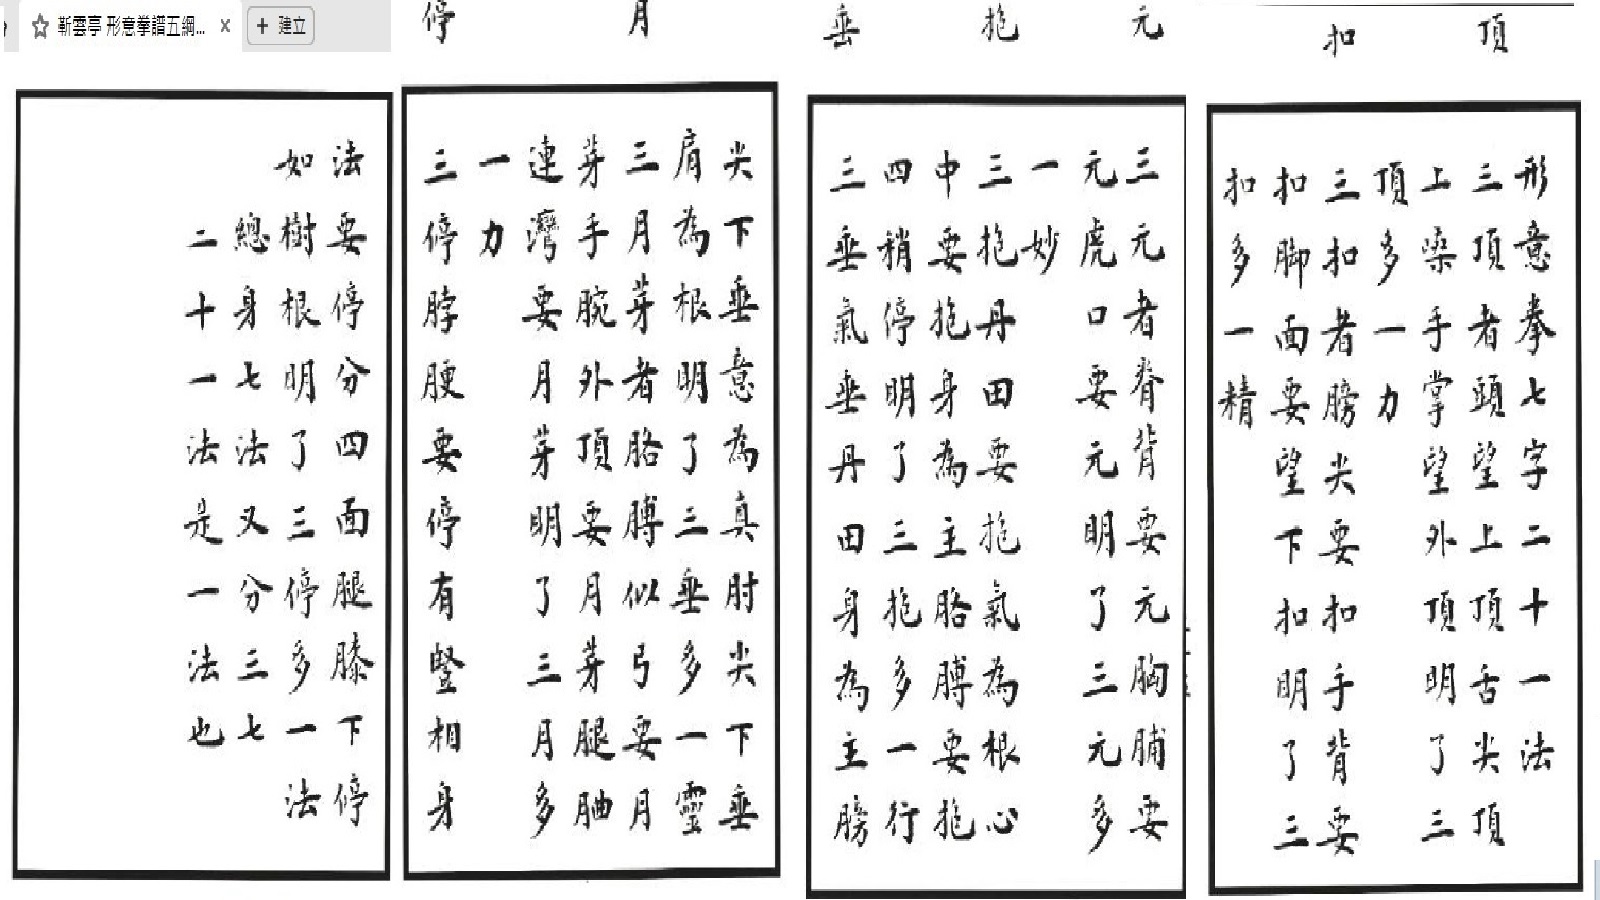 靳雲亭 形意拳譜五綱... x
+ 建立
頂
扣
形意拳七字二十一法
三頂者頭望上頂舌尖頂
上嗓手掌望外頂明了三
頂多一力
三扣者膀尖要扣手背要
扣脚面要望下扣明了三
扣多一精
元
抱
垂
三元者脊背要元胸脯要
元虎口要元明了三元多
一妙
三抱丹田要抱氣為根心
中要抱身為主胳膊要抱
四稍停明了三抱多一行
三垂氣垂丹田身為主膀
月
停
尖下垂意為真肘尖下垂
肩為根明了三垂多一靈
三月芽者胳膊似弓要月
芽手腕外頂要月芽腿
連灣要月芽明了三月多
一力
三停脖要停有豎相身
法要停分四面腿膝下停
如樹根明了三停多一法
總身七法又分三七
二十一法是一法也